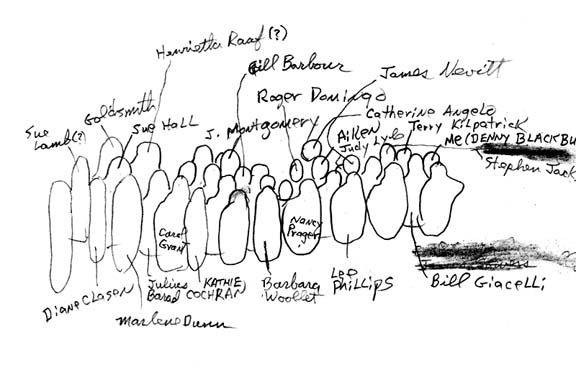 Henrietta Raaf (?)
Bill Barbour
James Nevitt
Roger Domingo
Goldsmith
Catherine Angelo
Sue
Lamb(?)
Sue Hall
J. Montgomery
Aiken
Terry Kilpatrick
Judy Lyle
Me (DENNY BLACKBU
Stephen Jack
Carol
Grant
Nancy
Prager
Diane Clason
Julius
Barad
KATHIE
COCHRAN
Barbara
Woollet
Leo
Phillips
Bill Giacelli
Marlene Dunn